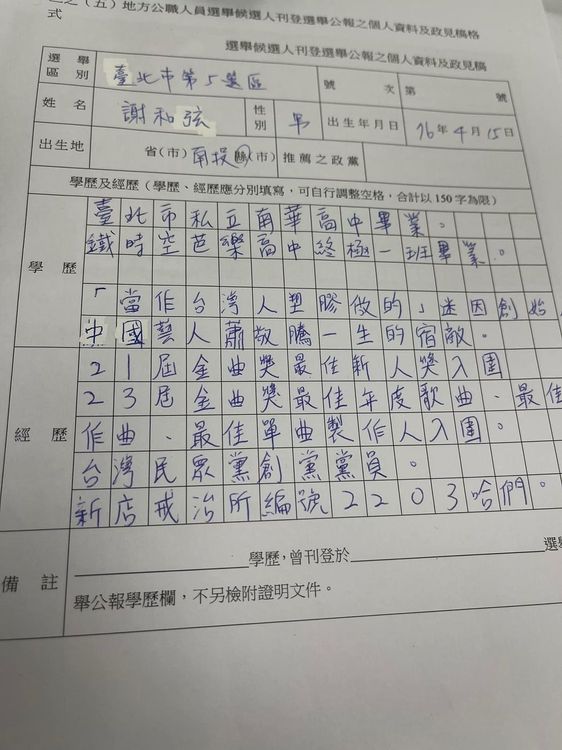 之（五）地方公職人員選舉候選人刊登選舉公報之個人資料及政見稿格
式
選舉候選人刊登選舉公報之個人資料及政見稿
選舉區別 臺北市第5選區 號次 第 號
姓名 謝和弦 性別 男 出生年月日 76年4月15日
出生地 省(市) 南投縣(市) 推薦之政黨
學歷及經歷（學歷、經歷應分別填寫，可自行調整空格，合計以150字為限）
學歷
臺北市私立南華高中畢業。
鐵時空芭樂高中終極一班畢業。
「當作台灣人塑膠做的」迷因創始
中國藝人蕭敬騰一生的宿敵。
經歷
21屆金曲獎最佳新人獎入圍
23屆金曲獎最佳年度歌曲、最佳
作曲、最佳單曲製作人入圍。
台灣民眾黨創黨黨員。
新店戒治所編號2203哈們。
備註
學歷，曾刊登於 選舉
舉公報學歷欄，不另檢附證明文件。